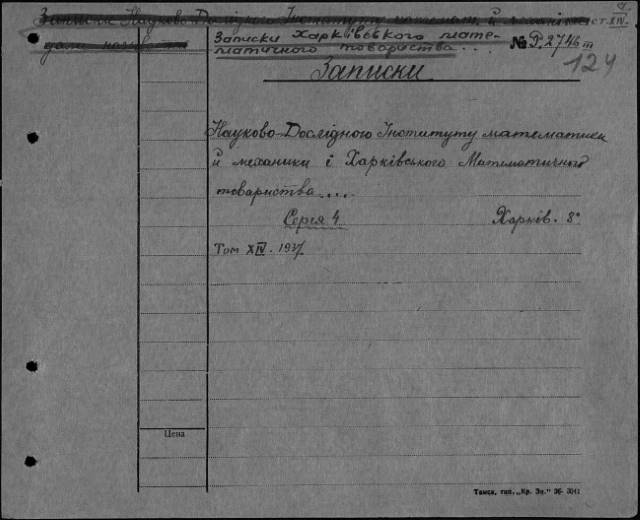 Записки Науково-Дослідного Інституту математ. й механіки ст. XIV.
дали назва
Записки Харківського мате-
матичного товариства...
№ Р. 2746 т
124
Записки
Науково-Дослідного Інституту математики
й механики і Харківського Математичного
товариства....
Серія 4 Харків. 8°
Том XIV. 1937.
Цена
Томск, тип. „Кр. Зн.“ 36-